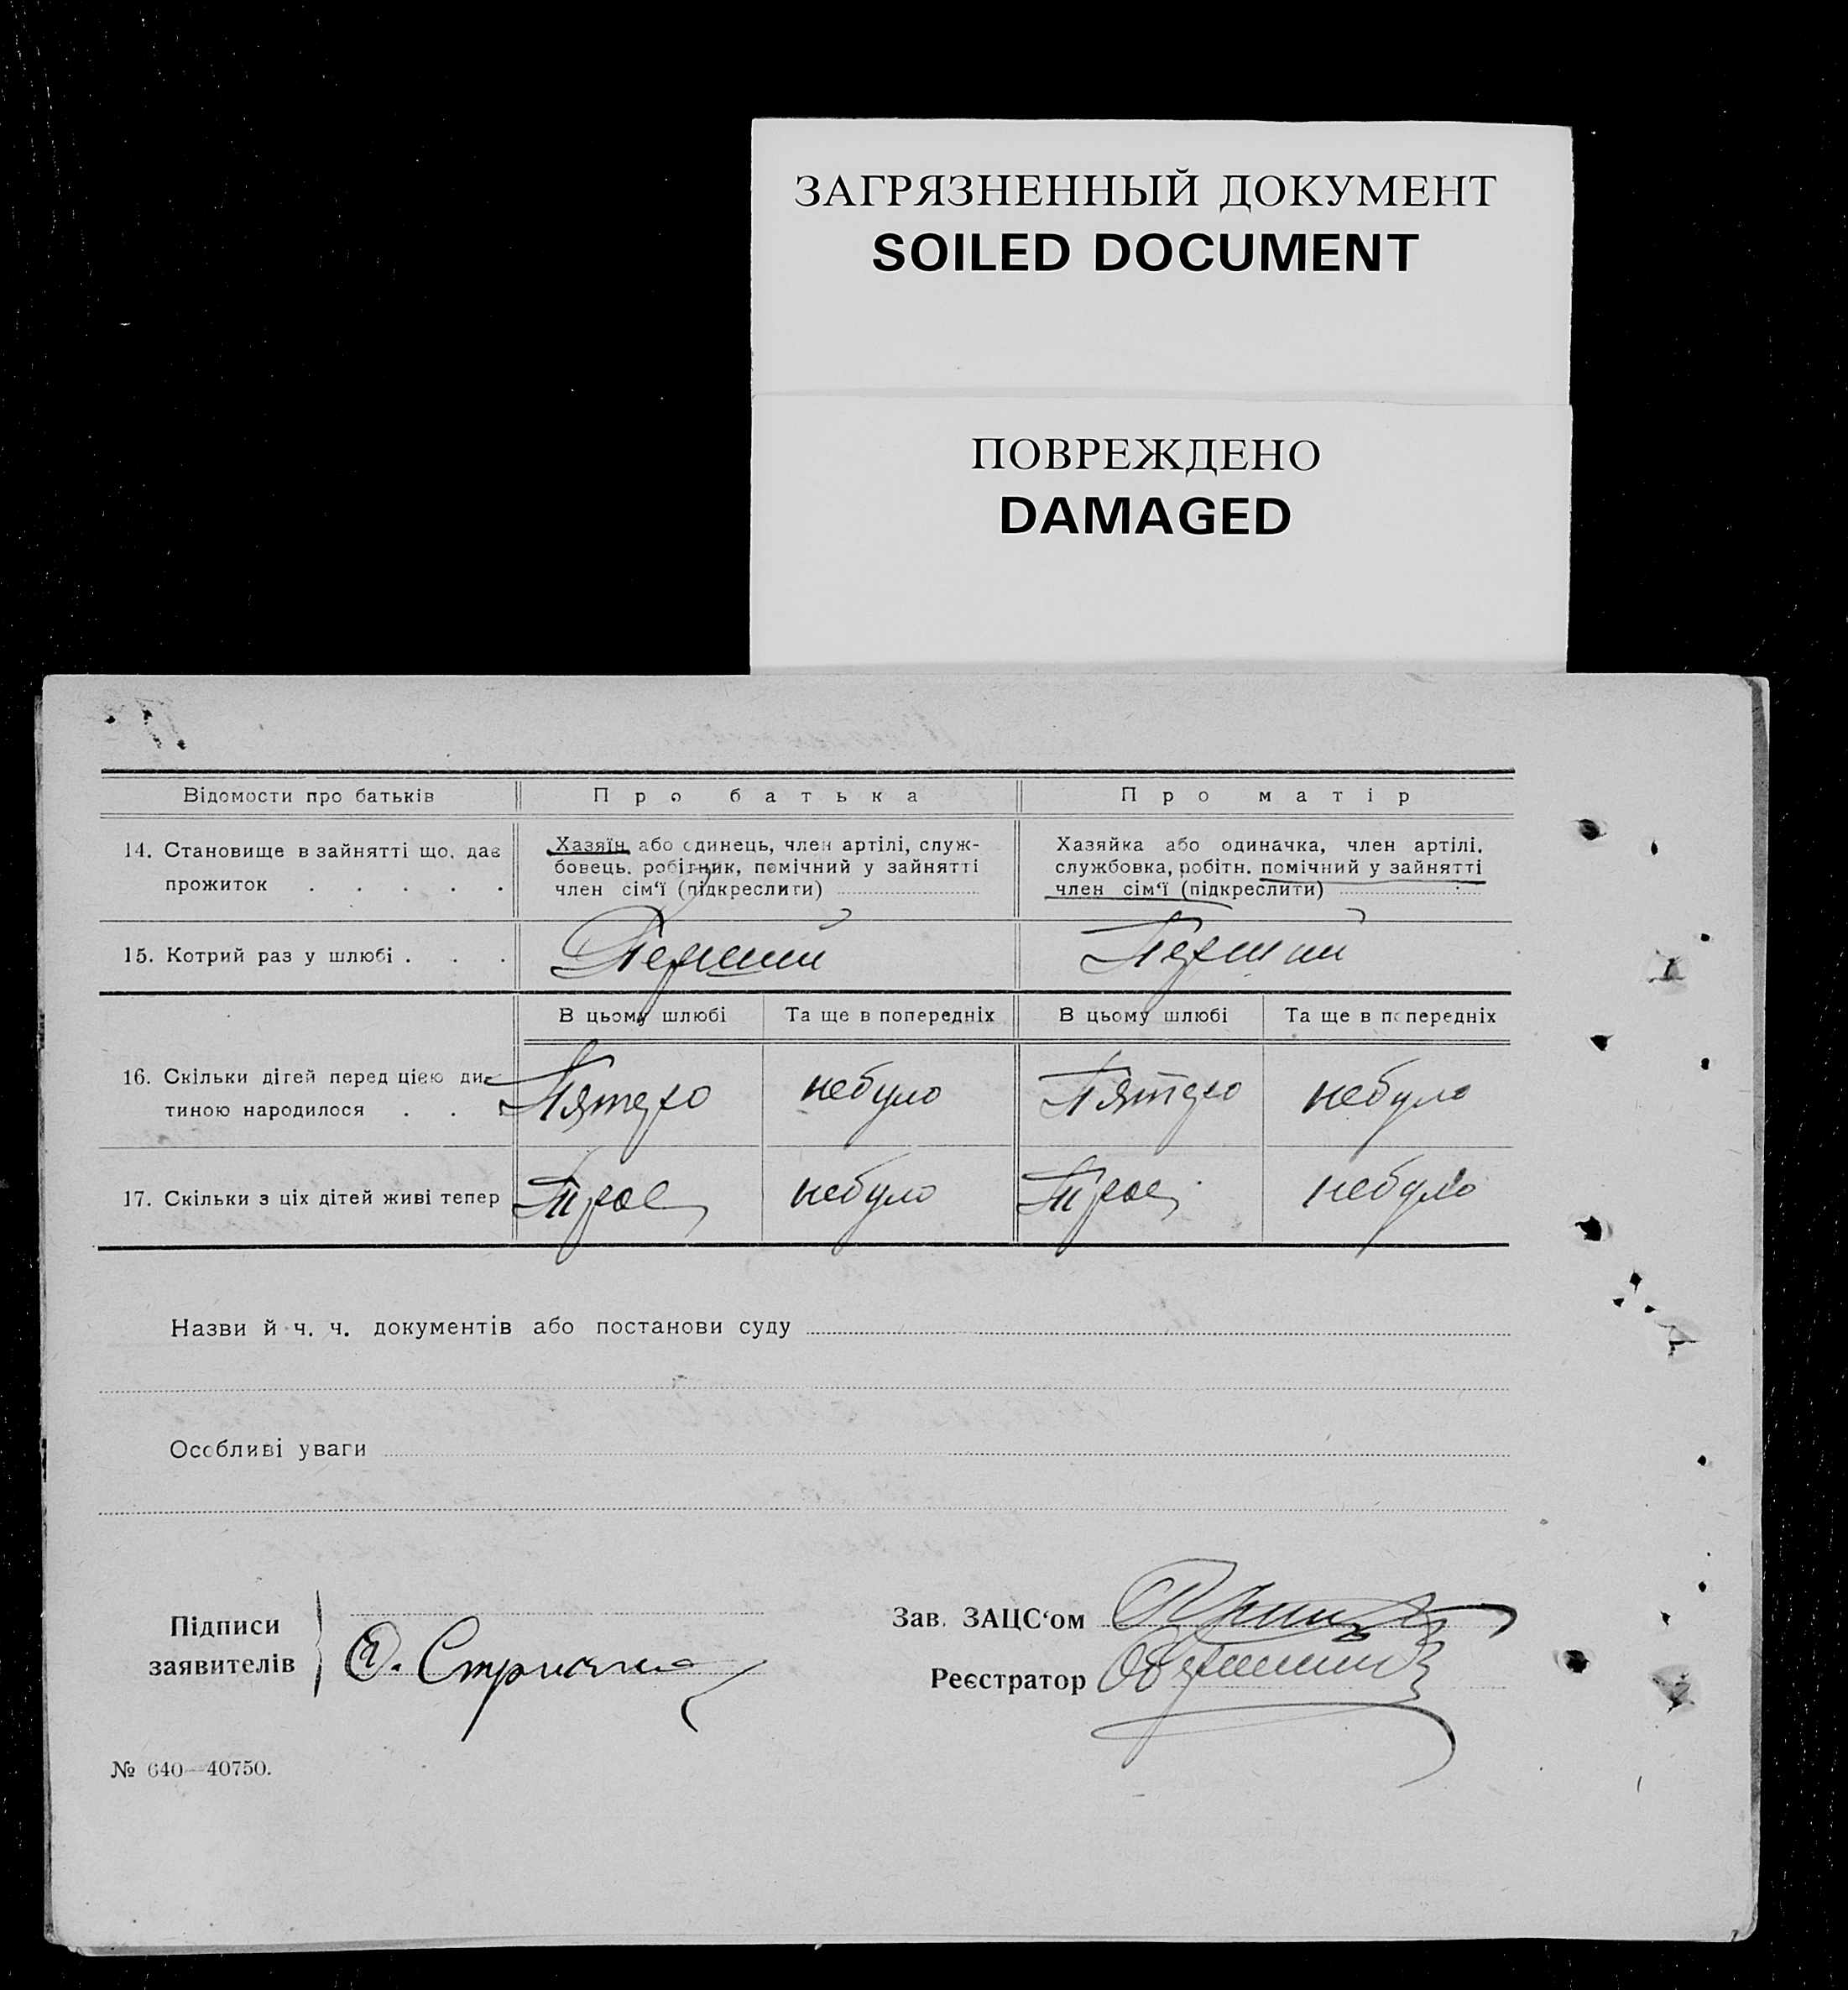 ЗАГРЯЗНЕННЫЙ ДОКУМЕНТ
SOILED DOCUMENT
ПОВРЕЖДЕНО
DAMAGED
Відомости про батьків
Про батька
Про матір
14. Становище в зайнятті що, дає
прожиток . . . . .
Хазяїн або єдинець, член артілі, служ-
бовець. робітник, помічний у зайнятті
член сім‘ї (підкреслити)
Хазяйка або одиначка, член артілі.
службовка, робітн. помічний у зайнятті
член сім‘ї (підкреслити)
15. Котрий раз у шлюбі . . .
Перший
Перший
В цьому шлюбі
Та ще в попередніх
В цьому шлюбі
Та ще в попередніх
16. Скільки дітей перед цією ди-
тиною народилося . . .
Пятеро
небуло
Пятеро
небуло
17. Скільки з ціх дітей живі тепер
Троє
небуло
Троє
небуло
Назви й ч. ч. документів або постанови суду
Особливі уваги
Підписи
заявителів
Зав. ЗАЦС‘ом
Реєстратор
№ 640—40750.